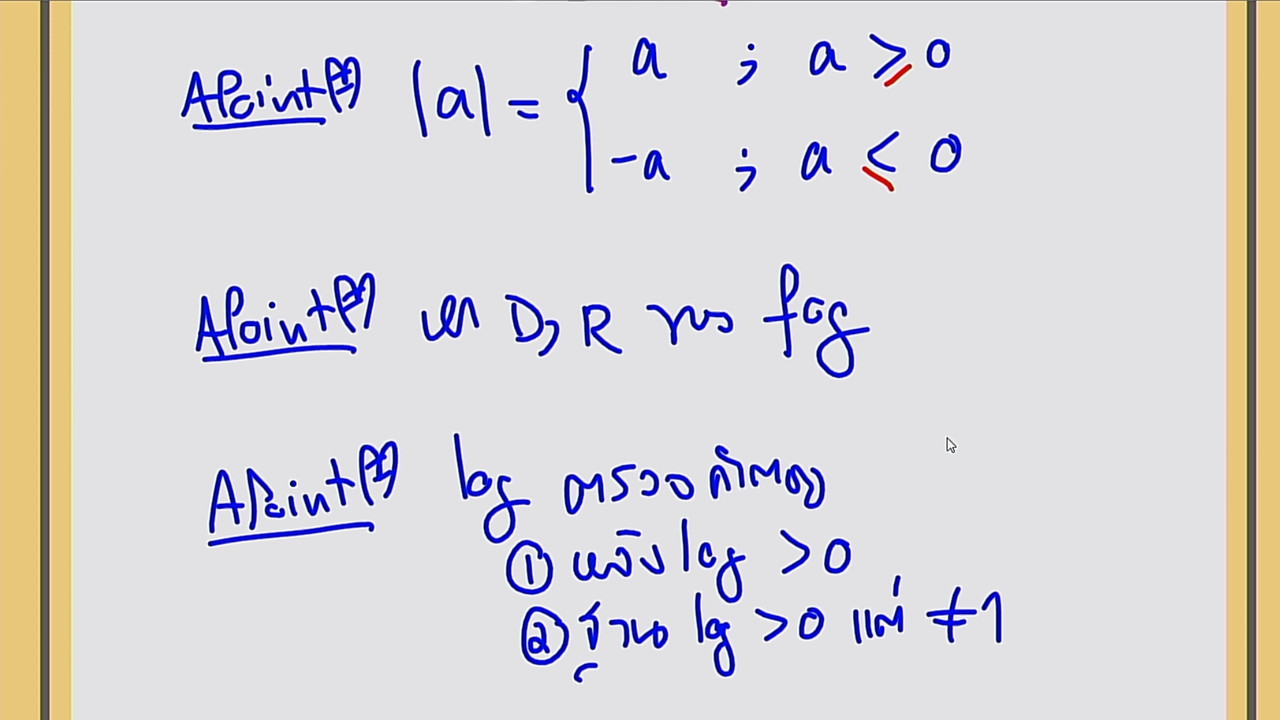 APoint(*) |a| = { a ; a ≥ 0
-a ; a ≤ 0
APoint(*) หา D, R ของ fog
APoint(*) log ตรวจคำตอบ
① หลัง log > 0
② ฐาน log > 0 แต่ ≠ 1